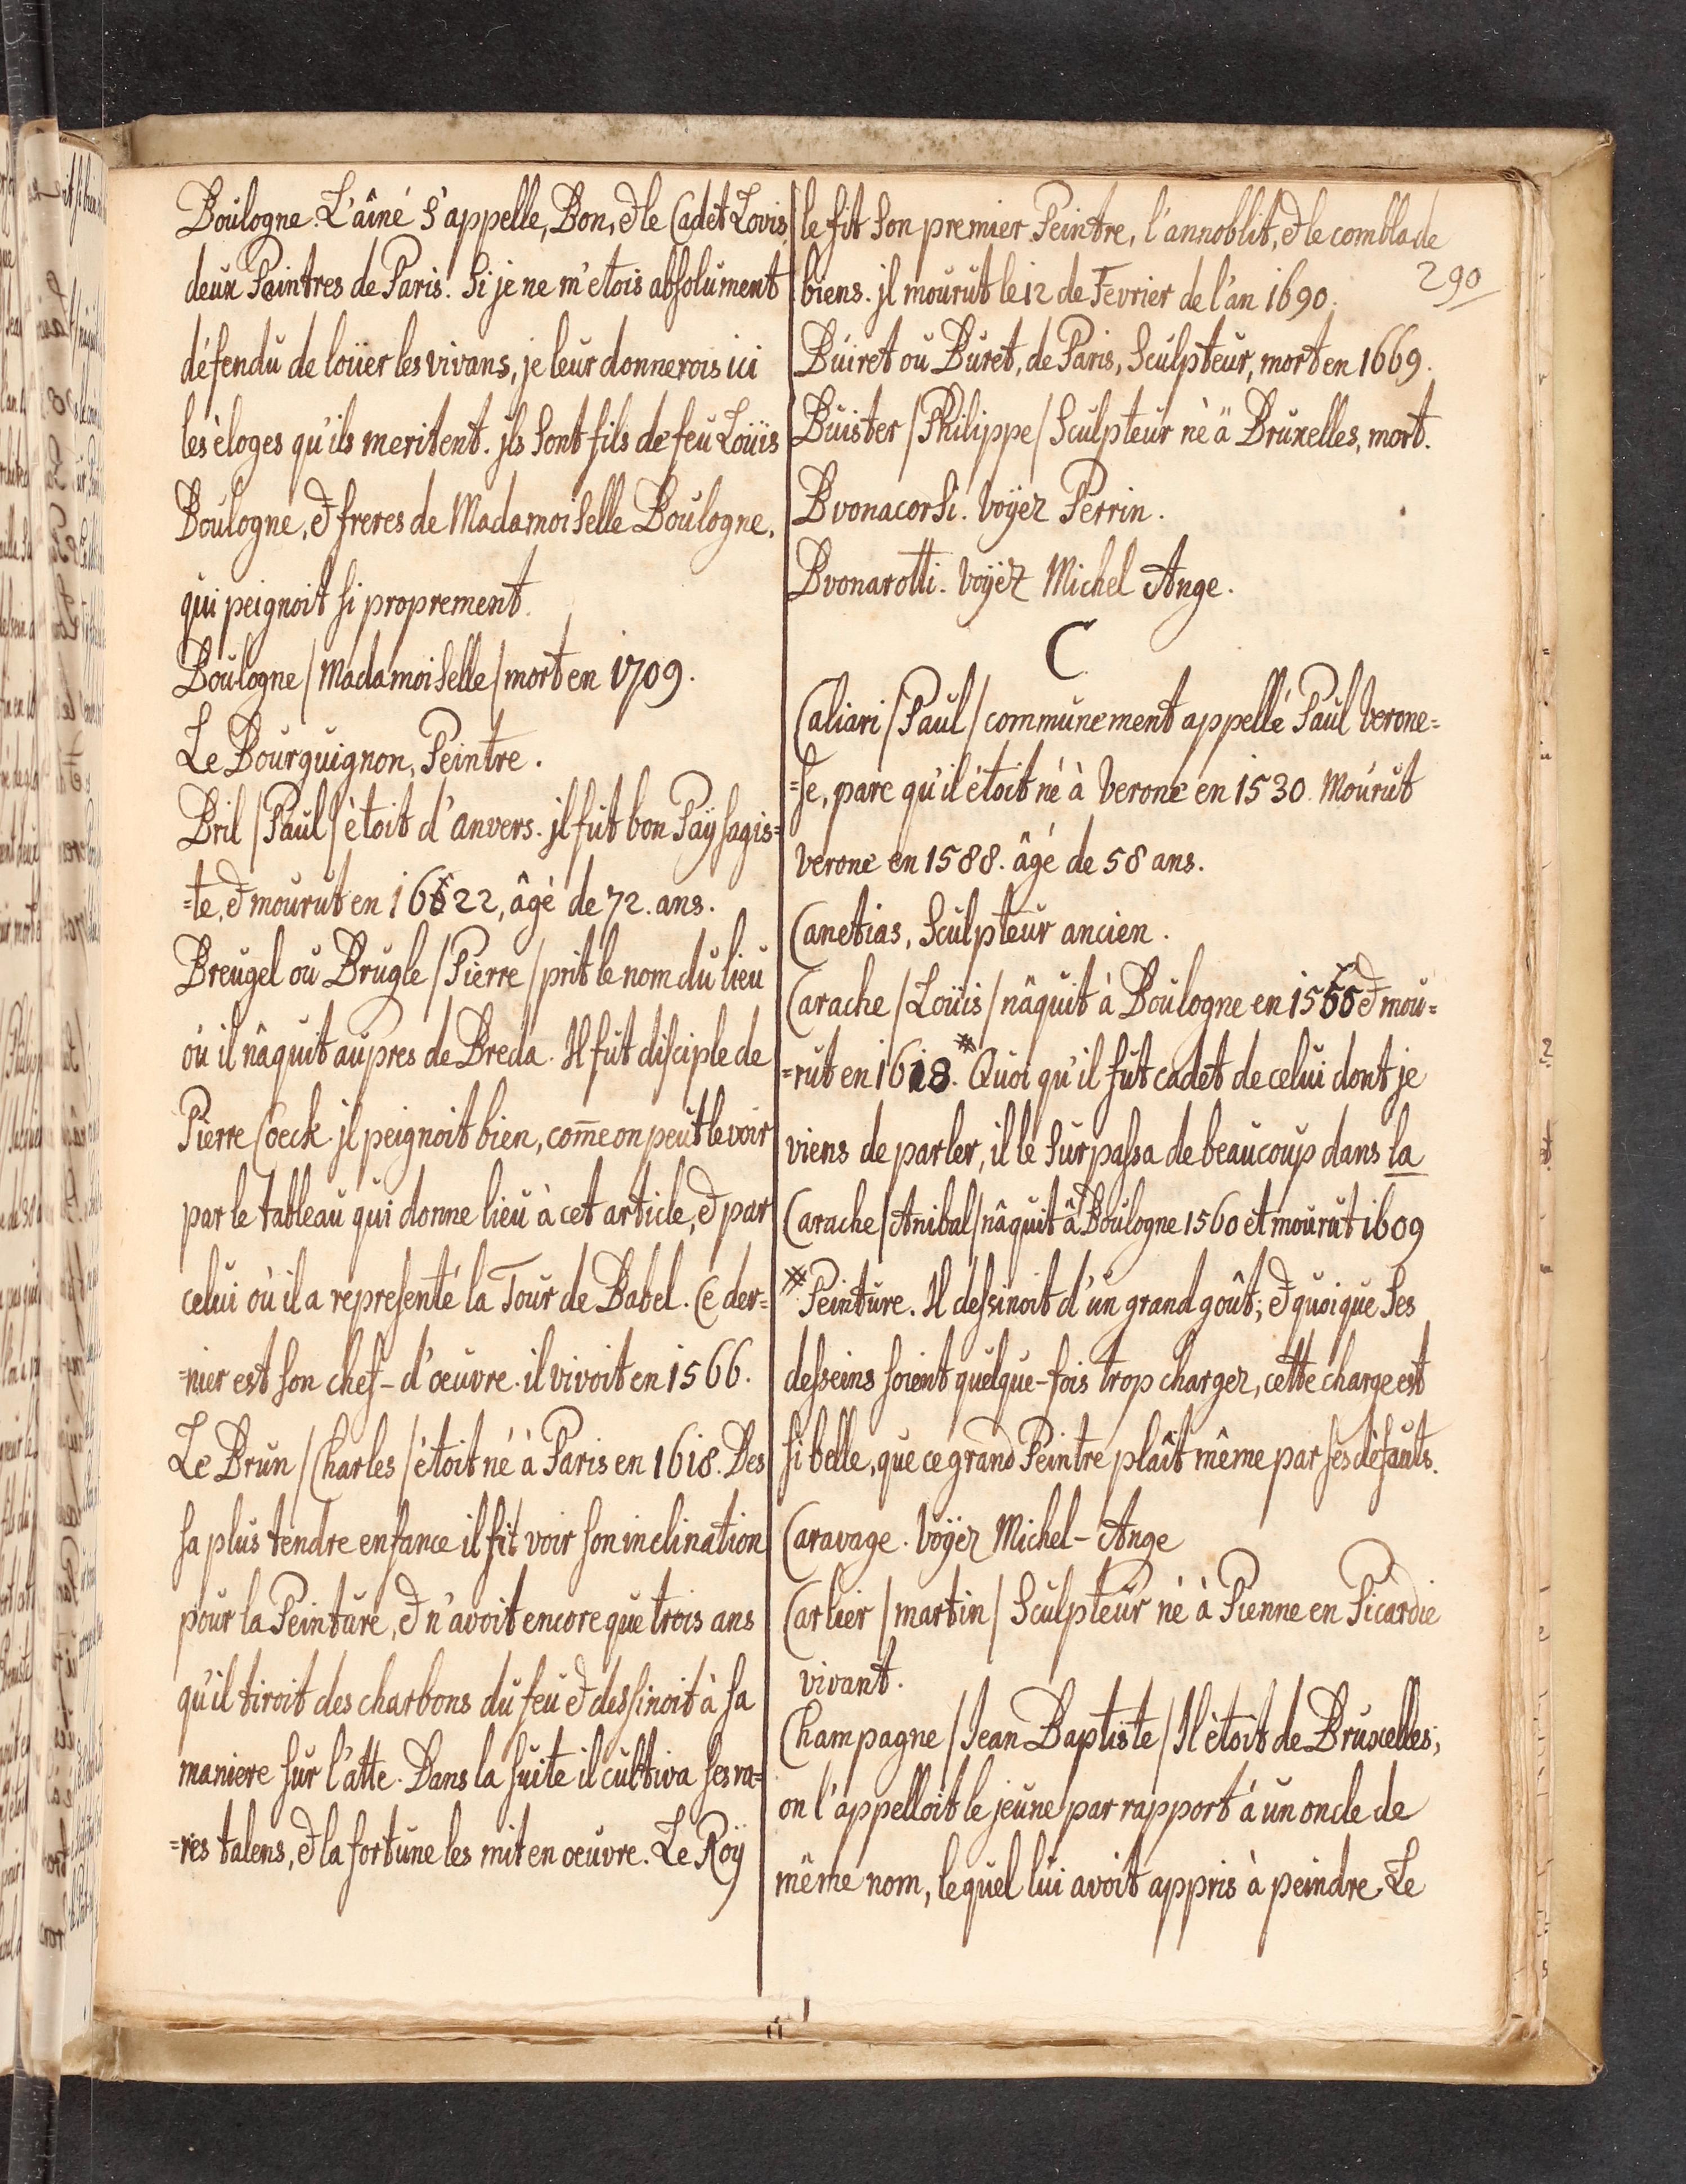 Boulogne. L'âiné s'appelle, Bon, & le Cadet Lovis,
deux Paintres de Paris. Si je ne m'etois absolument
défendu de loüer les vivans, je leur donnerois ici
les èloges qu'ils meritent. jls sont fils de feu Loüis
Boulogne, & freres de Madamoiselle Boulogne,
qui peignoit si proprement.
Boulogne / Madamoiselle / mort en 1709.
Le Bourguignon, Peintre.
Bril / Paul / ètoit d'anvers. jl fut bon Paÿsagis=
=te, & mourut en 1622, âgè de 72. ans.
Breugel ou Brugle / Pierre / prit le nom du lieu
où il nâquit aupres de Breda. Il fut disciple de
Pierre Coeck. jl peignoit bien, com̄e on peut le voir
par le tableau qui donne lieu à cet article, & par
celui où il a representé la Tour de Babel. Ce der=
=nier est son chef-d'oeuvre. il vivoit en 1566.
Le Brun / Charles / ètoit né à Paris en 1618. Des
sa plus tendre enfance il fit voir son inclination
pour la Peinture, & n'avoit encore que trois ans
qu'il tiroit des charbons du feu & dessinoit à sa
maniere sur l'atte. Dans la suite il cultiva ses ra=
=res talens, & la fortune les mit en oeuvre. Le Roÿ
le fit son premier Peintre, l'annoblit, & le combla de
290
biens. jl mourut le 12 de Fevrier de l'an 1690.
Buiret ou Buret, de Paris, Sculpteur, mort en 1669.
Buister / Philippe / Sculpteur nè ä Bruxelles, mort.
Bvonacorsi. voÿez Perrin.
Bvonarotti. voÿëz Michel Ange.
C
Caliari / Paul / communement appellé Paul verone=
=se, parc qu'il étoit né à verone en 1530. Mourut
verone en 1588. âgé de 58 ans.
Canetias, Sculpteur ancien.
Carache / Loüis / nâquit à Boulogne en 1555 & mou=
=rut en 1618.* Quoi qu'il fut cadet de celui dont je
viens de parler, il le surpassa de beaucoup dans la
Carache / Anibal / nâquit â Boulogne 1560 et mourut 1609
* Peinture. Il dessinoit d'un grand goût; & quoique ses
desseins soient quelque-fois trop chargez, cette charge est
si belle, que ce grand Peintre plaît même par ses dèfauts.
Caravage. voÿez Michel-Ange
Carlier / martin / Sculpteur né à Pienne en Picardie
vivant.
Champagne / Jean Baptiste / Il ètoit de Bruxelles;
on l'appelloit le jeune par rapport à un oncle de
même nom, lequel lui avoit appris à peindre. Le